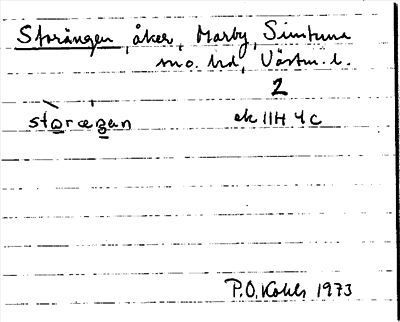 Storängen, åker, Marby, Simtuna
sno. hd, Västm. l.
2
storæŋan ek 11H 4c
P.O. Kohls 1973